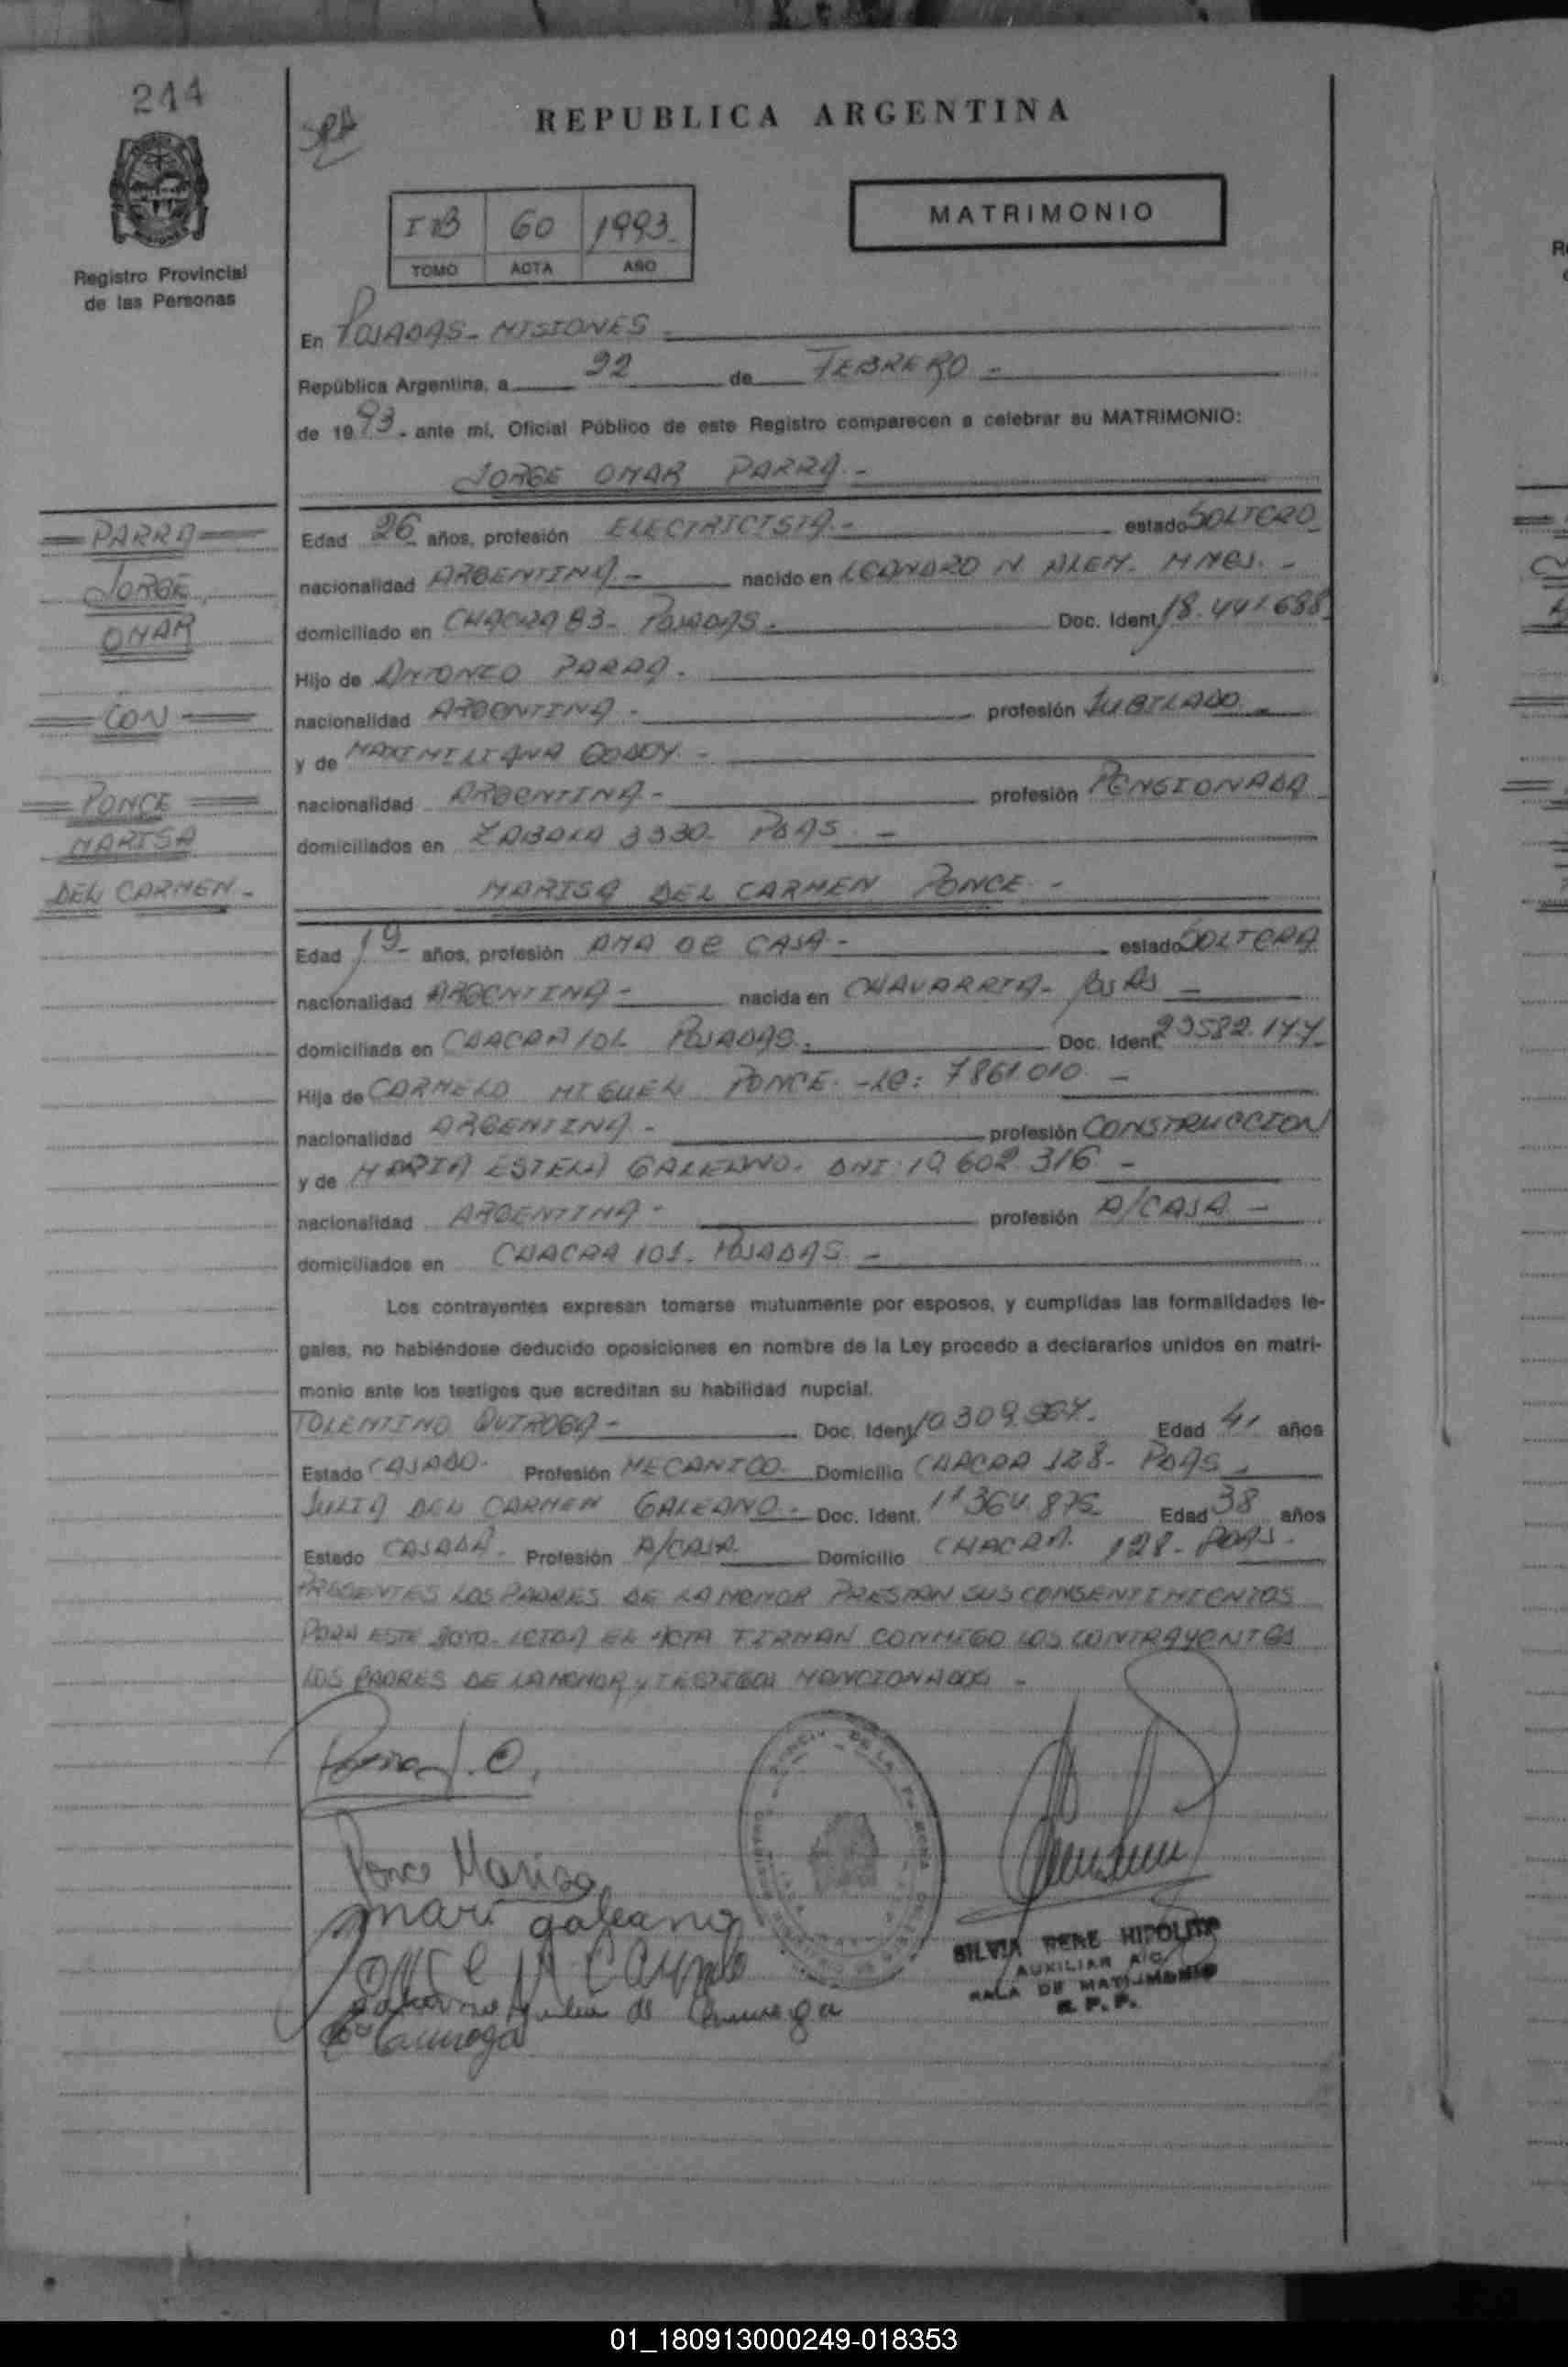 244
REPUBLICA ARGENTINA
MATRIMONIO
60 1993
TOMO ACTA AÑO
Registro Provincial
de las Personas
En POSADAS - MISIONES -
República Argentina, a 22 de FEBRERO -
de 1993 - ante mi, Oficial Público de este Registro comparecen a celebrar su MATRIMONIO:
JORGE OMAR PARRA -
PARRA
JORGE
OMAR
CON
PONCE
MARISA
DEL CARMEN -
Edad 26 años, profesión ELECTRICISTA - estado SOLTERO
nacionalidad ARGENTINA - nacido en LEANDRO N. ALEM. MNES. -
domiciliado en CHACRA 83 - POSADAS - Doc. Ident. 18.441.688
Hijo de ANTONIO PARRA -
nacionalidad ARGENTINA - profesión JUBILADO -
y de MAXIMILIANA GODOY -
nacionalidad ARGENTINA - profesión PENSIONADA
domiciliados en ZABALA 3330 - PDAS -
MARISA DEL CARMEN PONCE -
Edad 19 años, profesión AMA DE CASA - estado SOLTERA
nacionalidad ARGENTINA - nacida en CHAVARRIA -
domiciliada en CHACRA 101 POSADAS - Doc. Ident. 23582.144
Hija de CARMELO MIGUEL PONCE - LE: 7861.010 -
nacionalidad ARGENTINA - profesión CONSTRUCCION
y de MARIA ESTELA GALEANO - DNI: 12 602 316 -
nacionalidad ARGENTINA - profesión A/CASA -
domiciliados en CHACRA 101 - POSADAS -
Los contrayentes expresan tomarse mutuamente por esposos, y cumplidas las formalidades le-
gales, no habiéndose deducido oposiciones en nombre de la Ley procedo a declararlos unidos en matri-
monio ante los testigos que acreditan su habilidad nupcial.
TOLENTINO QUIROGA - Doc. Ident. 10.309.964. Edad 41 años
Estado CASADO - Profesión MECANICO - Domicilio CHACRA 128 - PDAS -
JULIA DEL CARMEN GALEANO - Doc. Ident. 11 364.875 Edad 38 años
Estado CASADA - Profesión A/CASA Domicilio CHACRA 128 - PDAS -
PRESENTES LOS PADRES DE LA MENOR PRESTAN SUS CONSENTIMIENTOS
PARA ESTE ACTO. LEIDA EL ACTA FIRMAN CONMIGO LOS CONTRAYENTES
LOS PADRES DE LA MENOR Y TESTIGOS MENCIONADOS -
Parra J. O.
Ponce Marisa
mari galeano
SILVIA RENE HIPOLITO
AUXILIAR A/C
SALA DE MATRIMONIO
R. P. P.
01_180913000249-018353